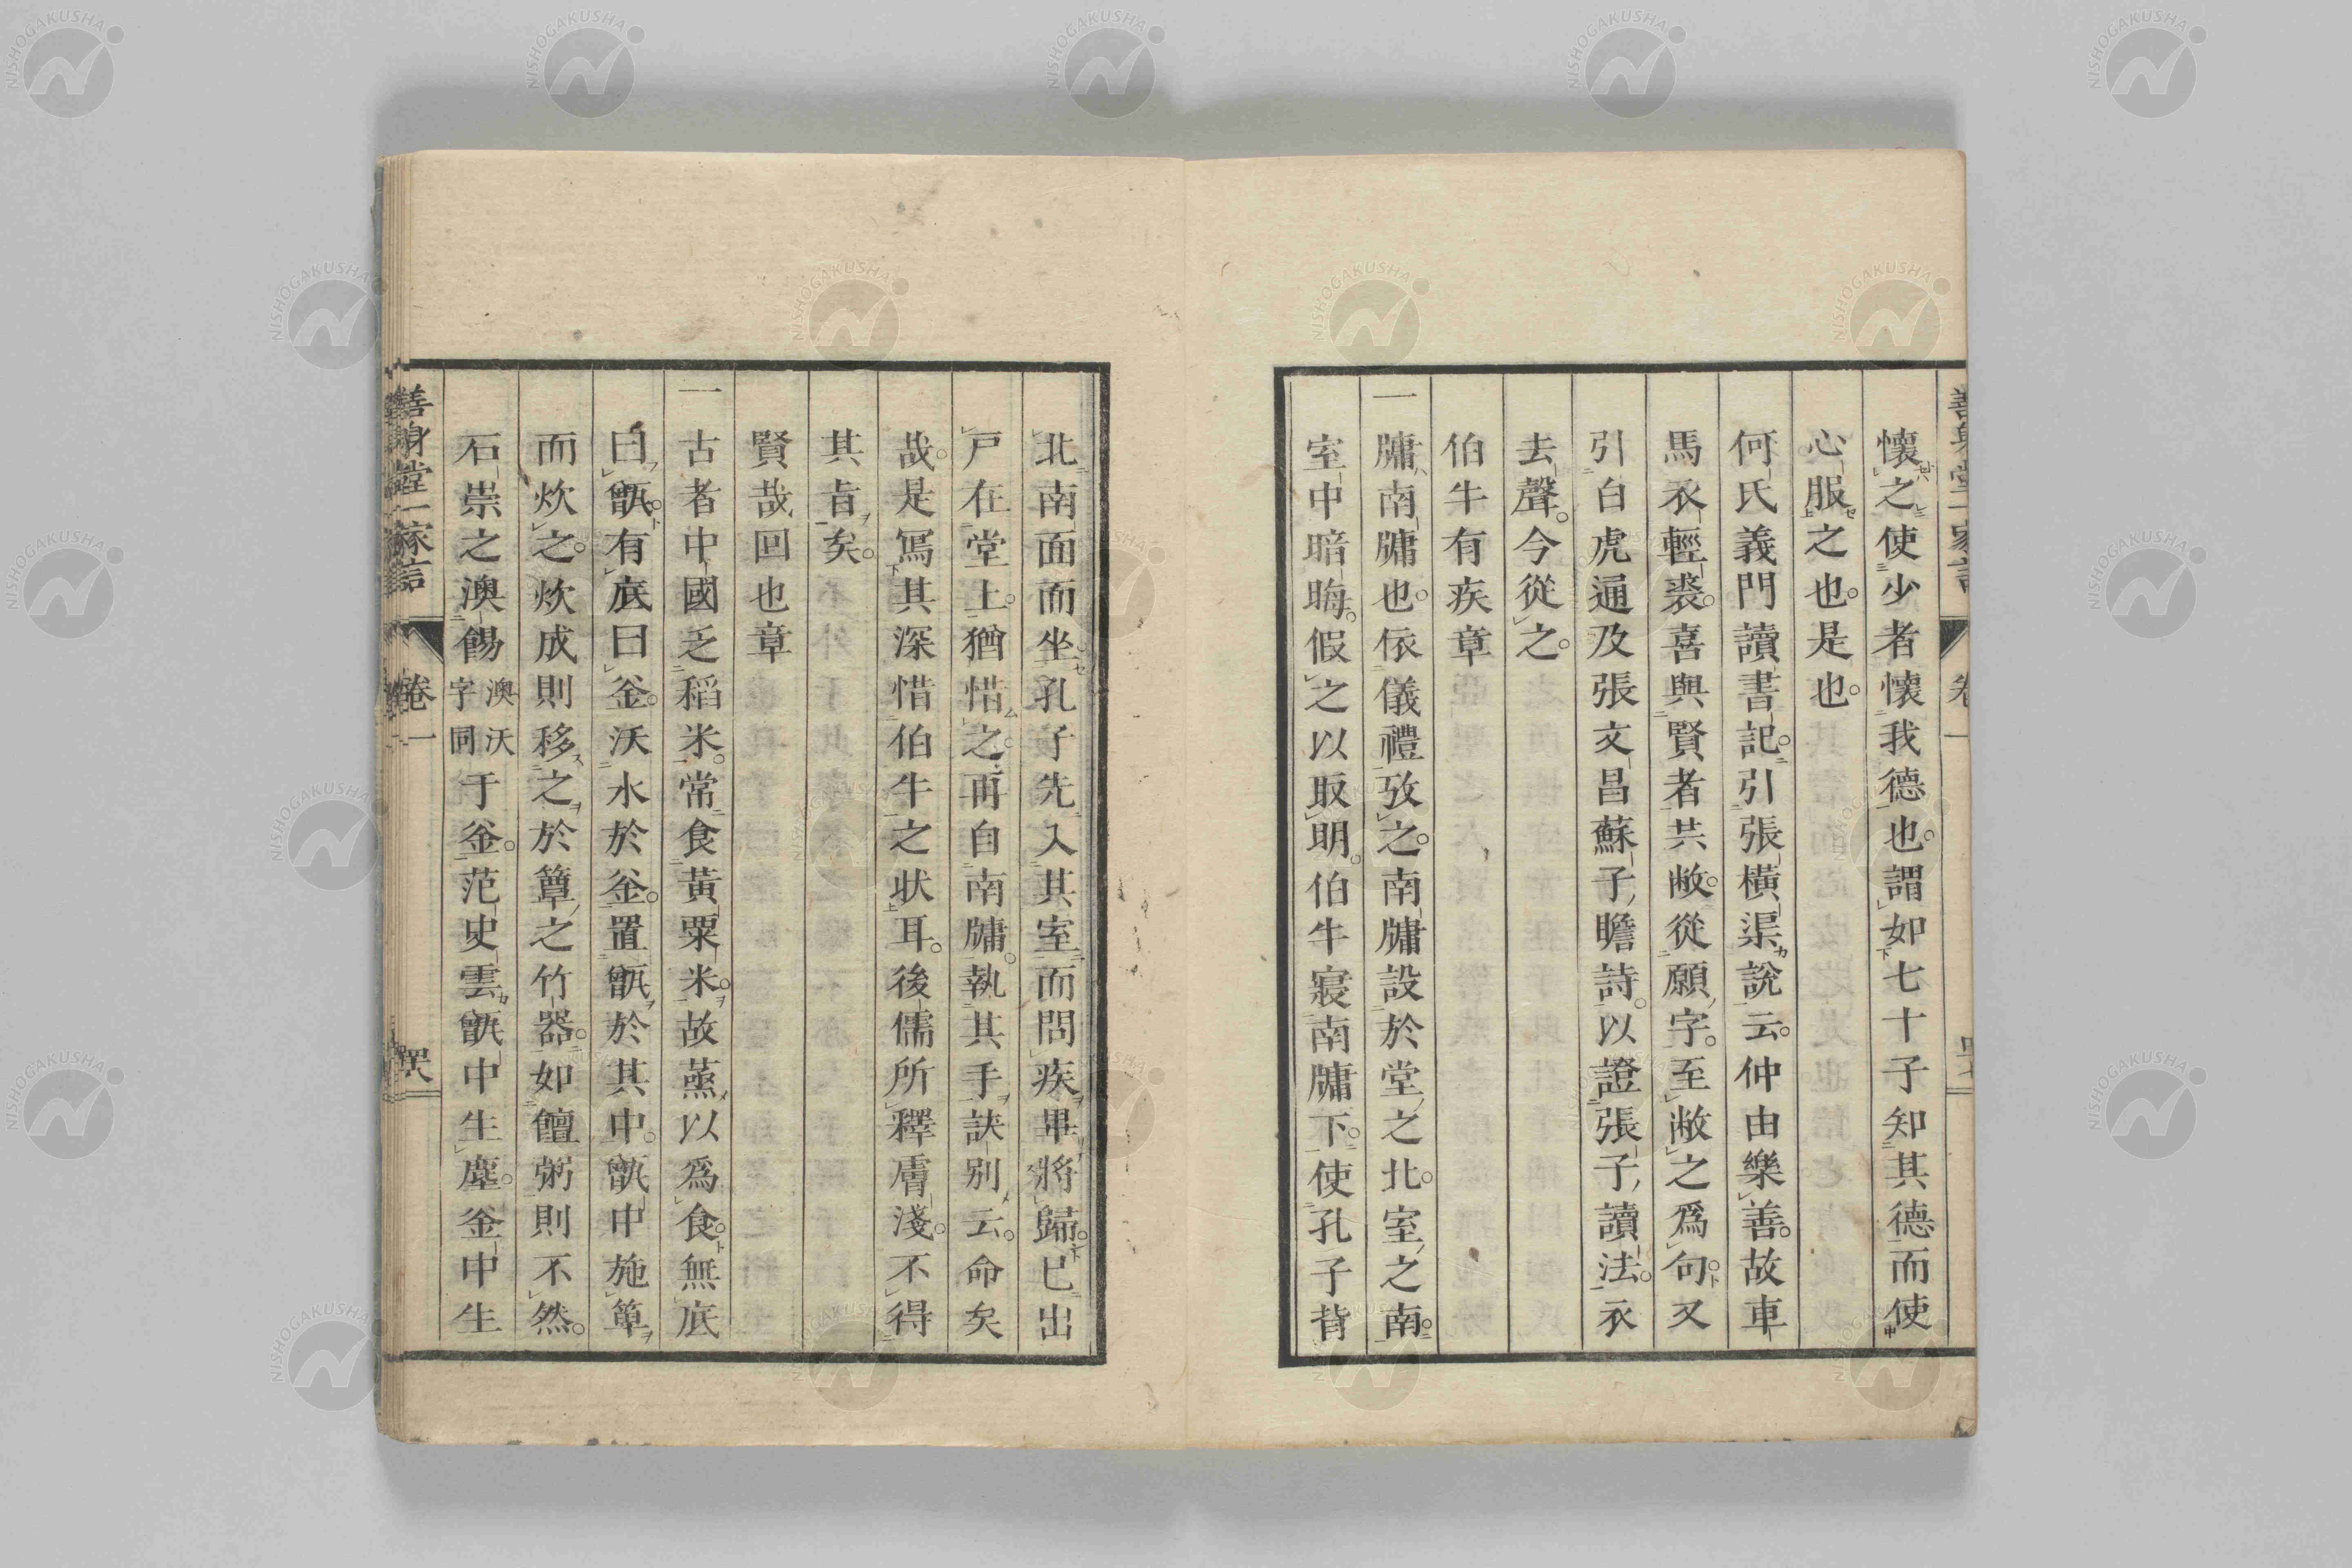 懷之使少者懷我德也謂如七十子知其德而使
心服之也是也
何氏義門讀書記引張橫渠說云仲由樂善故車
馬衣輕裘喜與賢者共敝從願字至敝之爲句又
引白虎通及張文昌蘇子瞻詩以證張子讀法衣
去聲今從之
伯牛有疾章
一牗南牗也依儀禮攷之南牗設於堂之北室之南
室中暗晦假之以取明伯牛寢南牗下使孔子背
北南面而坐孔子先入其室而問疾畢將歸已出
戶在堂上猶惜之再自南牗執其手訣別云命矣
哉是寫其深惜伯牛之狀耳後儒所釋膚淺不得
其旨矣
賢哉回也章
一古者中國乏稻米常食黃粟米故蒸以爲食無底
曰甑有底曰釜沃水於釜置甑於其中甑中施簞
而炊之炊成則移之於簞之竹器如饘粥則不然
石崇之澳餳澳沃字同于釜范史雲甑中生塵釜中生
善身堂一家言 卷一
NISHOGAKUSHA